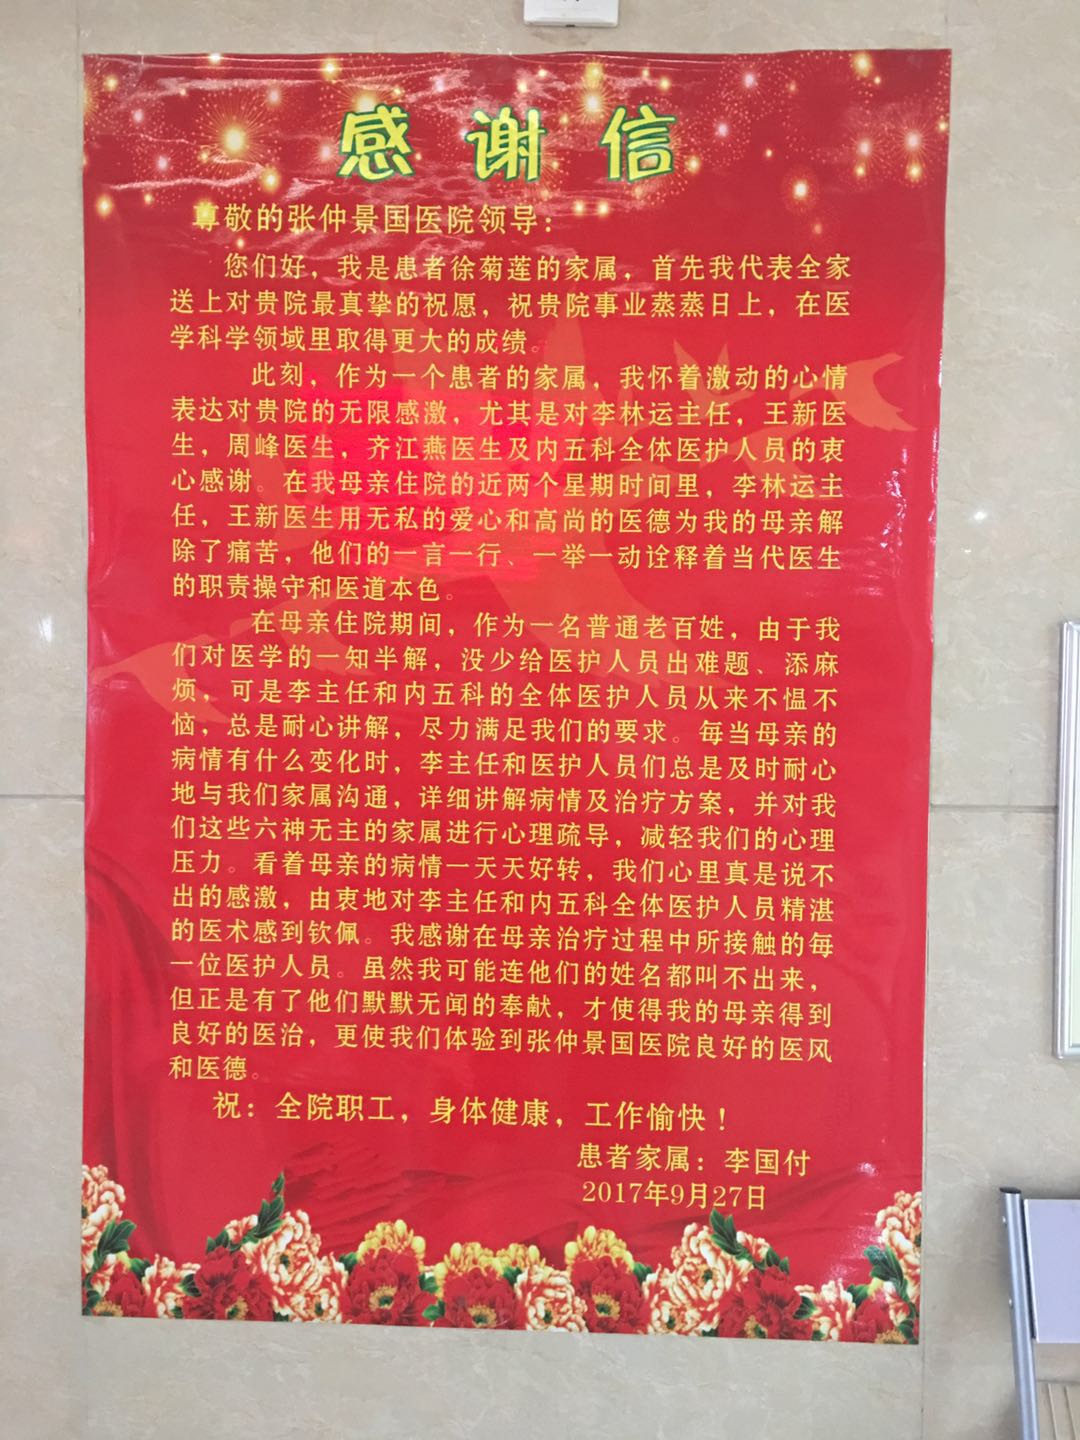 感谢信
尊敬的张仲景国医院领导：
您们好，我是患者徐菊莲的家属，首先我代表全家
送上对贵院最真挚的祝愿，祝贵院事业蒸蒸日上，在医
学科学领域里取得更大的成绩。
此刻，作为一个患者的家属，我怀着激动的心情
表达对贵院的无限感激，尤其是对李林运主任，王新医
生，周峰医生，齐江燕医生及内五科全体医护人员的衷
心感谢。在我母亲住院的近两个星期时间里，李林运主
任，王新医生用无私的爱心和高尚的医德为我的母亲解
除了痛苦，他们的一言一行、一举一动诠释着当代医生
的职责操守和医道本色。
在母亲住院期间，作为一名普通老百姓，由于我
们对医学的一知半解，没少给医护人员出难题、添麻
烦，可是李主任和内五科的全体医护人员从来不愠不
恼，总是耐心讲解，尽力满足我们的要求。每当母亲的
病情有什么变化时，李主任和医护人员们总是及时耐心
地与我们家属沟通，详细讲解病情及治疗方案，并对我
们这些六神无主的家属进行心理疏导，减轻我们的心理
压力。看着母亲的病情一天天好转，我们心里真是说不
出的感激，由衷地对李主任和内五科全体医护人员精湛
的医术感到钦佩。我感谢在母亲治疗过程中所接触的每
一位医护人员。虽然我可能连他们的姓名都叫不出来，
但正是有了他们默默无闻的奉献，才使得我的母亲得到
良好的医治，更使我们体验到张仲景国医院良好的医风
和医德。
祝：全院职工，身体健康，工作愉快！
患者家属：李国付
2017年9月27日